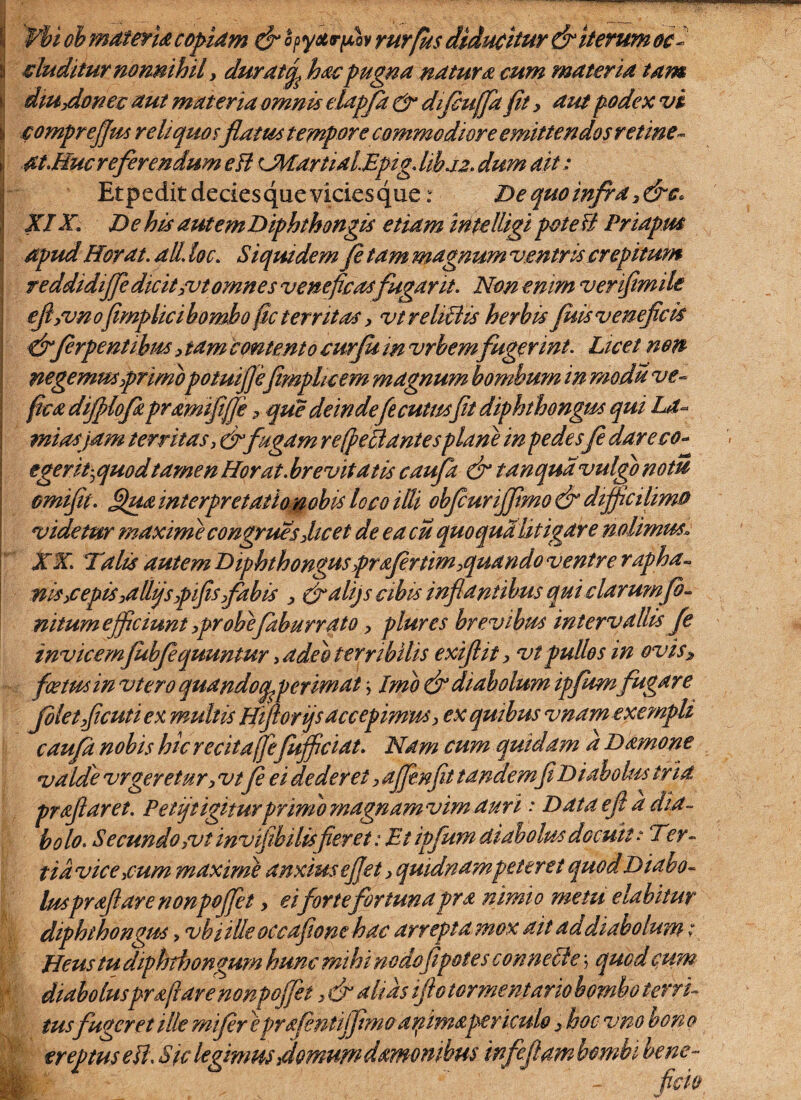 Vbi ob materiæ copiam & ὀργασμὸν rursus diducitur & iterum oc-
cluditur nonnihil, duratq; hæc pugna naturæ cum materia tam
diu, donec aut materia omnis elapsa & discussa sit, aut podex vi
compressus reliquos flatus tempore commodiore emittendos retine-
at. Huc referendum est Martial. Epig. lib. 12. dum ait:
Et pedit deciesque viciesque: De quo infra, &c.
XIX. De his autem Diphthongis etiam intelligi potest Priapus
apud Horat. all. loc. Siquidem se tam magnum ventris crepitum
reddidisse dicit, vt omnes veneficas fugarit. Non enim verisimile
est, vno simplici bombo sic territas, vt relictis herbis suis veneficis
& serpentibus, tam contento cursu in vrbem fugerint. Licet non
negemus, primò potuisse simplicem magnum bombum in modū ve-
sicæ displosæ præmisisse, quē deinde secutus sit diphthongus qui La-
mias jam territas, & fugam respectantes planè in pedes se dare co-
egerit; quod tamen Horat. brevitatis causa & tanquā vulgò notū
omisit. Quæ interpretatio nobis loco illi obscurissimo & difficilimo
videtur maximè congruēs, licet de ea cū quoquā litigare nolimus.
XX. Talis autem Diphthongus, præsertim, quando ventre rapha-
nis, cepis, allijs, pisis, fabis, & alijs cibis inflantibus qui clarum so-
nitum efficiunt, probè saburrato, plures brevibus intervallis se
invicem subsequuntur, adeò terribilis existit, vt pullos in ovis,
fœtus in vtero quandoq; perimat; Imò & diabolum ipsum fugare
solet, sicuti ex multis Historijs accepimus, ex quibus vnam exempli
causa nobis hîc recitasse sufficiat. Nam cum quidam à Dæmone
valdè vrgeretur, vt se ei dederet, assensit tandem si Diabolus tria
præstaret. Petijt igitur primò magnam vim auri: Data est à dia-
bolo. Secundo, vt invisibilis fieret: Et ipsum diabolus docuit: Ter-
tiâ vice, cum maximè anxius esset, quidnam peteret quod Diabo-
lus præstare non posset, ei forte fortuna præ nimio metu elabitur
diphthongus, vbi ille occasione hac arrepta mox ait ad diabolum:
Heus tu diphthongum hunc mihi nodo si potes connecte; quod cum
diabolus præstare non posset, & aliàs isto tormentario bombo terri-
tus fugeret ille miser è præsentissimo animæ periculo, hoc vno bono
ereptus est. Sic legimus, domum dæmonibus infestam bombi bene-
ficio